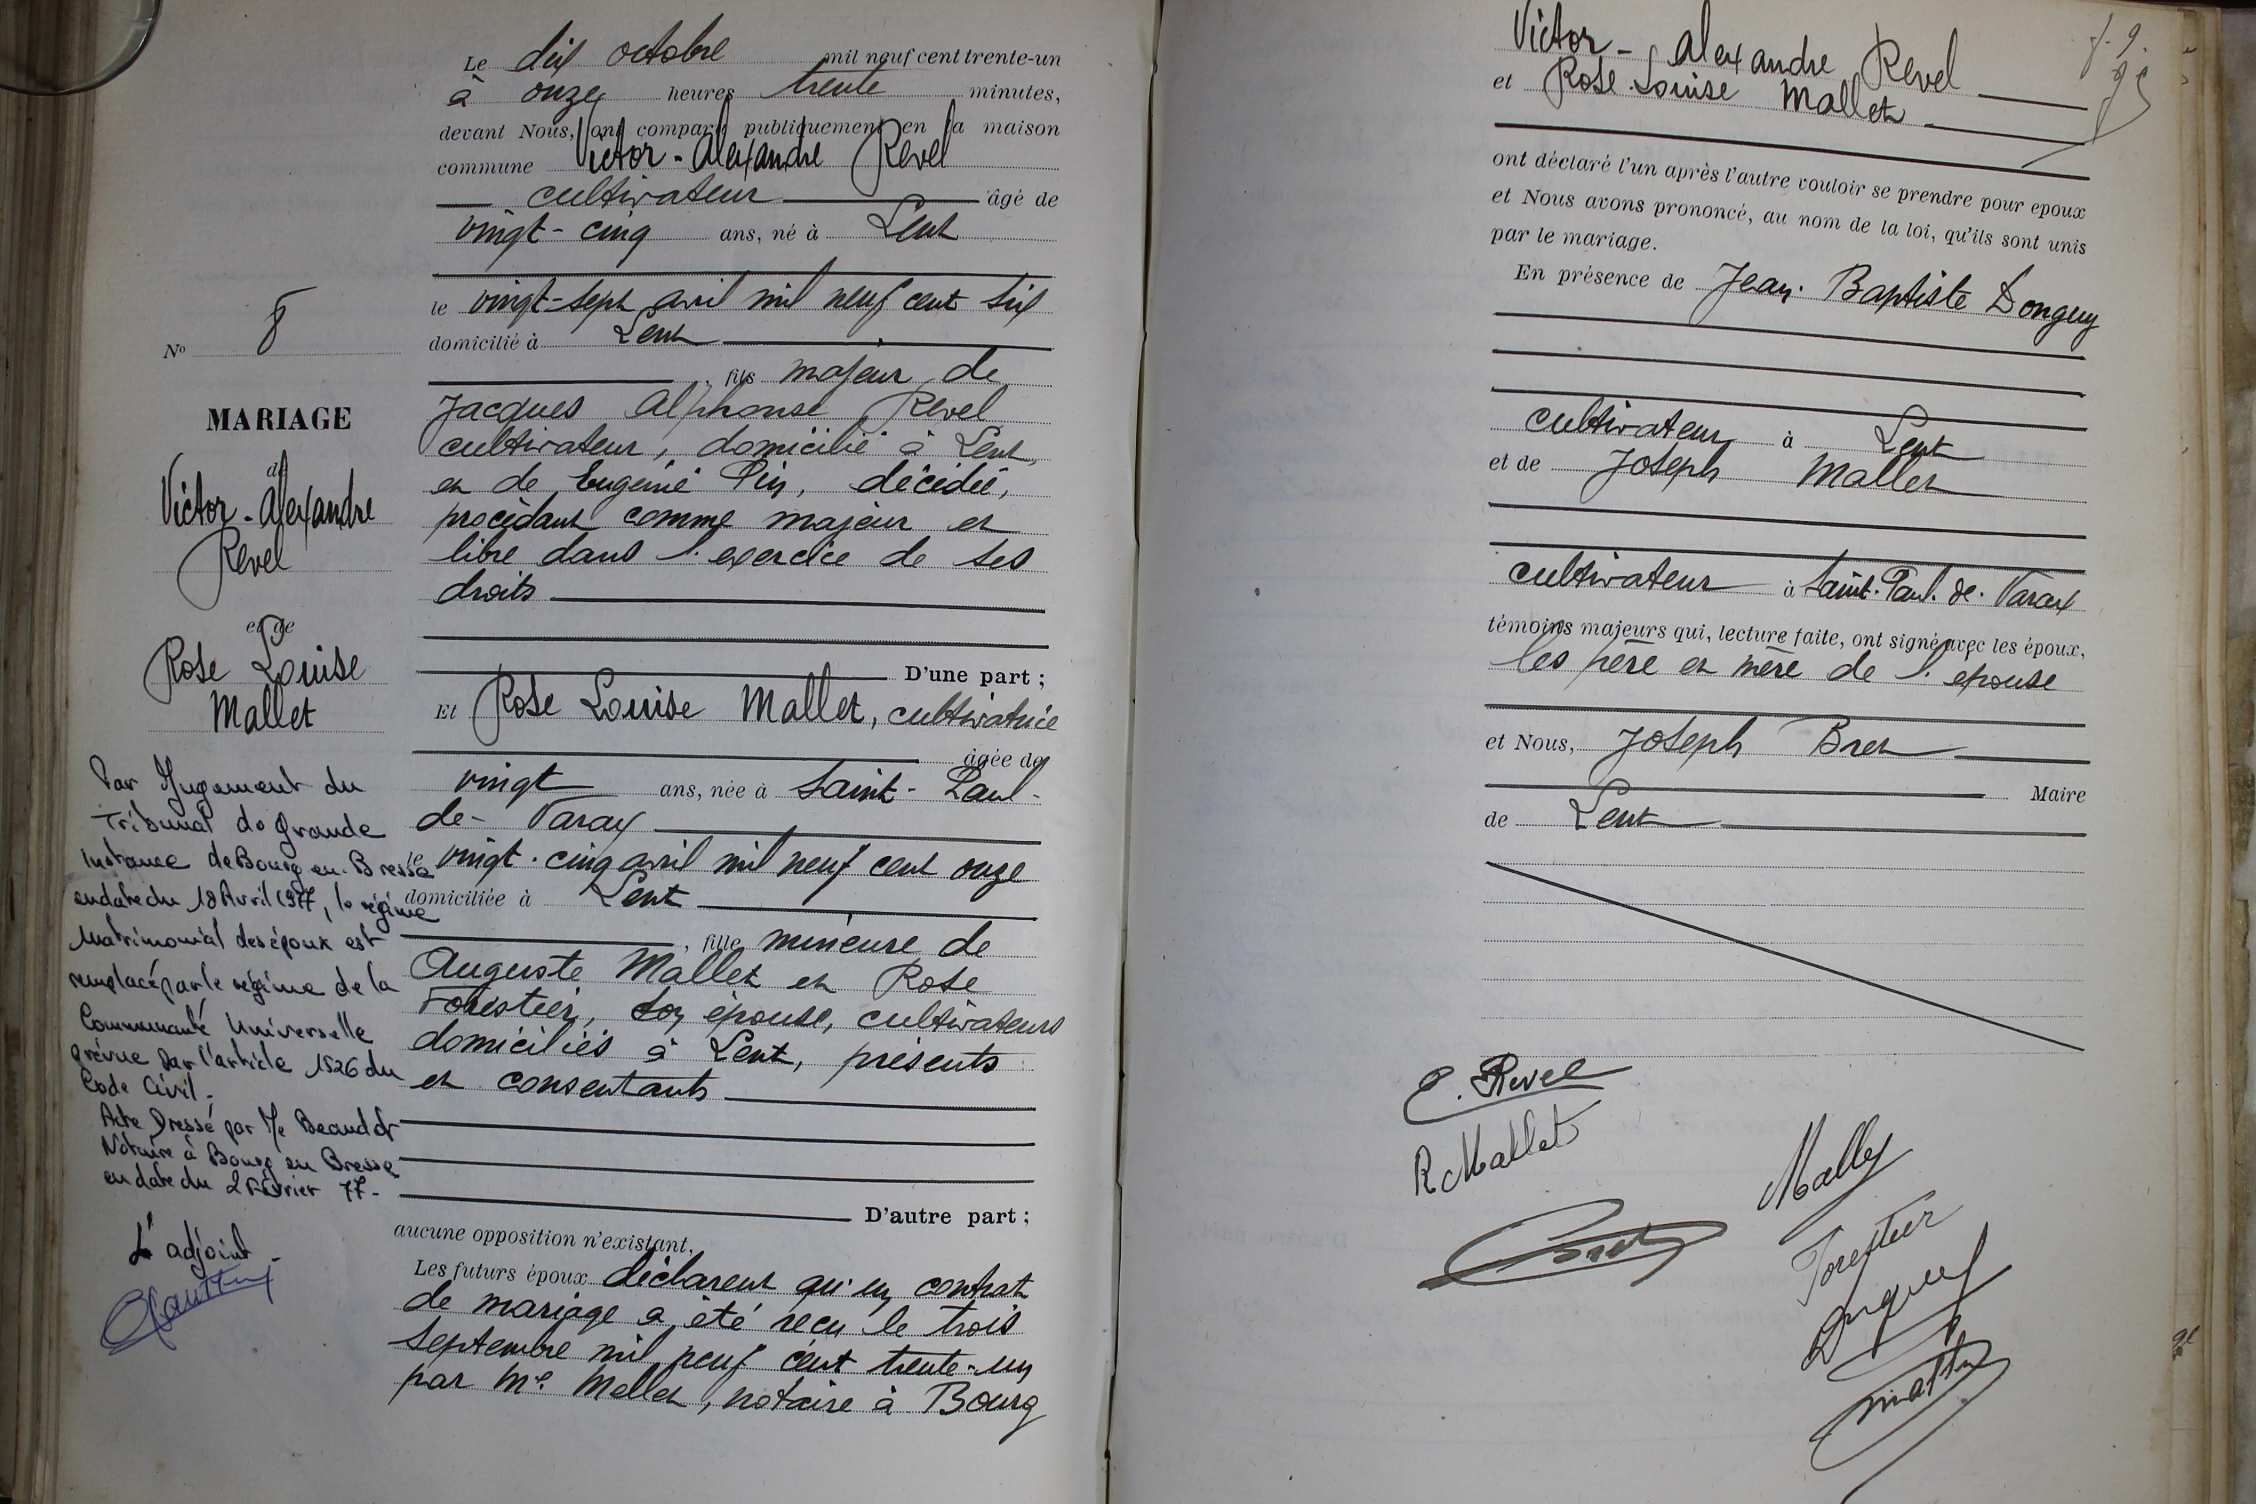 Le dix octobre mil neuf cent trente-un
à onze heures trente minutes,
devant Nous, ont comparu publiquement en la maison
commune Victor-Alexandre Revel
cultivateur âgé de
vingt-cinq ans, né à Lent
le vingt-sept avril mil neuf cent six
domicilié à Lent
, fils majeur de
Jacques Alphonse Revel
cultivateur, domicilié à Lent,
et de Eugénie Pin, décédée,
procédant comme majeur et
libre dans l'exercice de ses
droits
D'une part ;
Et Rose Louise Mallet, cultivatrice
âgée de
vingt ans, née à Saint-Paul-
de-Varax
le vingt-cinq avril mil neuf cent onze
domiciliée à Lent
, fille mineure de
Auguste Mallet et Rose
Forestier, son épouse, cultivateurs
domiciliés à Lent, présents
et consentants
D'autre part ;
aucune opposition n'existant,
Les futurs époux déclarent qu'un contrat
de mariage a été reçu le trois
septembre mil neuf cent trente-un
par Me Mallet, notaire à Bourg
No 8
MARIAGE
de
Victor-Alexandre
Revel
et de
Rose Louise
Mallet
Par Jugement du
Tribunal de Grande
Instance de Bourg-en-Bresse
en date du 18 Avril 1977, le régime
matrimonial des époux est
remplacé par le régime de la
Communauté Universelle
prévue par l'article 1526 du
Code Civil.
Acte Dressé par Me Beaudot
Notaire à Bourg en Bresse
en date du 2 Février 77-
L'adjoint-
Victor-Alexandre Revel
et Rose Louise Mallet
ont déclaré l'un après l'autre vouloir se prendre pour epoux
et Nous avons prononcé, au nom de la loi, qu'ils sont unis
par le mariage.
En présence de Jean-Baptiste Donguy
cultivateur à Lent
et de Joseph Mallet
cultivateur à Saint-Paul-de-Varax
témoins majeurs qui, lecture faite, ont signé avec les époux,
les père et mère de l'épouse
et Nous, Joseph Bret
Maire
de Lent
Revel
R Mallet
Mallet
Bret
Forestier
Donguy